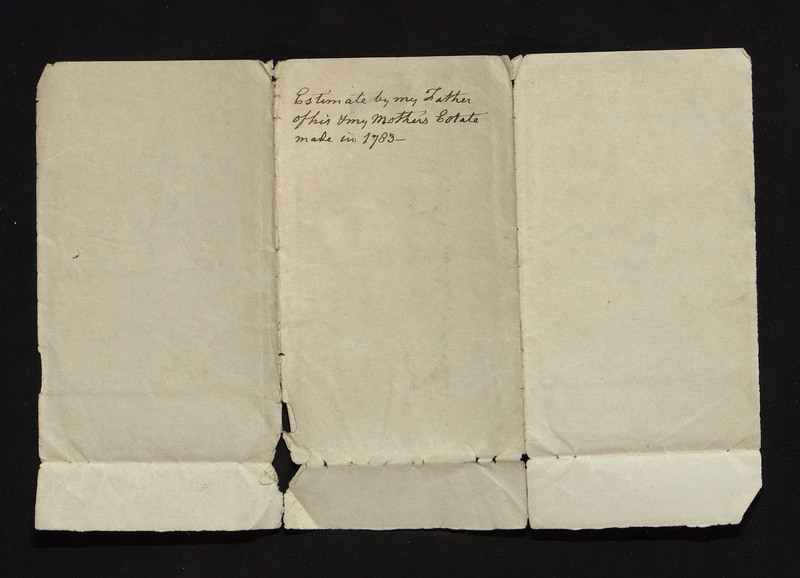 Estimate by my Father
of his & my Mothers Estate
made in 1783—